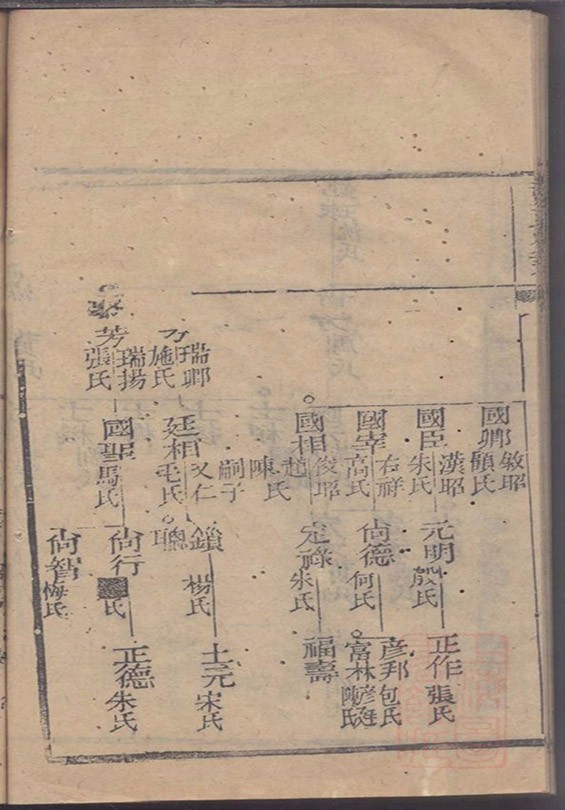 國卿 敏昭 顧氏
國臣 漢昭 朱氏
元明 殷氏
正作 張氏
國宰 右祥 高氏
尙德 何氏
彥邦 包氏
富林 陳氏
國相 俊昭 趙 陳氏
定祿 朱氏
福壽
瑞卿 施氏
廷相 又仁 毛氏 嗣子
鎖 楊氏
士元 宋氏
聰
芳 瑞揚 張氏
國聖 馬氏
尙行 氏
正德 朱氏
尙智 梅氏